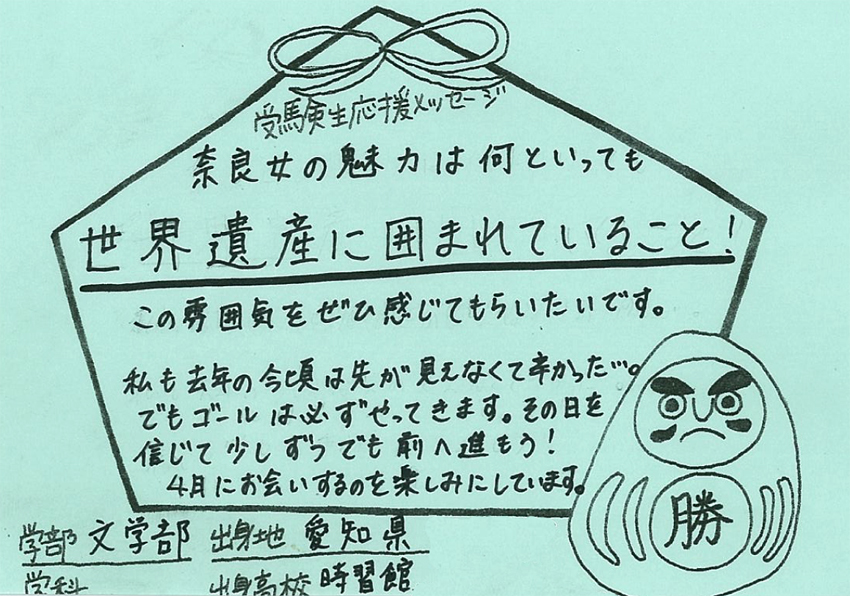 受験生応援メッセージ
奈良女の魅力は何といっても
世界遺産に囲まれていること!
この雰囲気をぜひ感じてもらいたいです。
私も去年の今頃は先が見えなくて辛かった…。
でもゴールは必ずやってきます。その日を
信じて少しずつでも前へ進もう!
4月にお会いするのを楽しみにしています。
勝
学部 文学部 出身地 愛知県
学科 出身高校 時習館